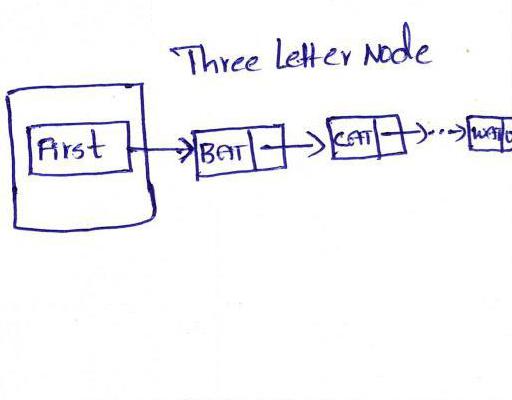 Three Letter Node
First BAT CAT ... WAT 0